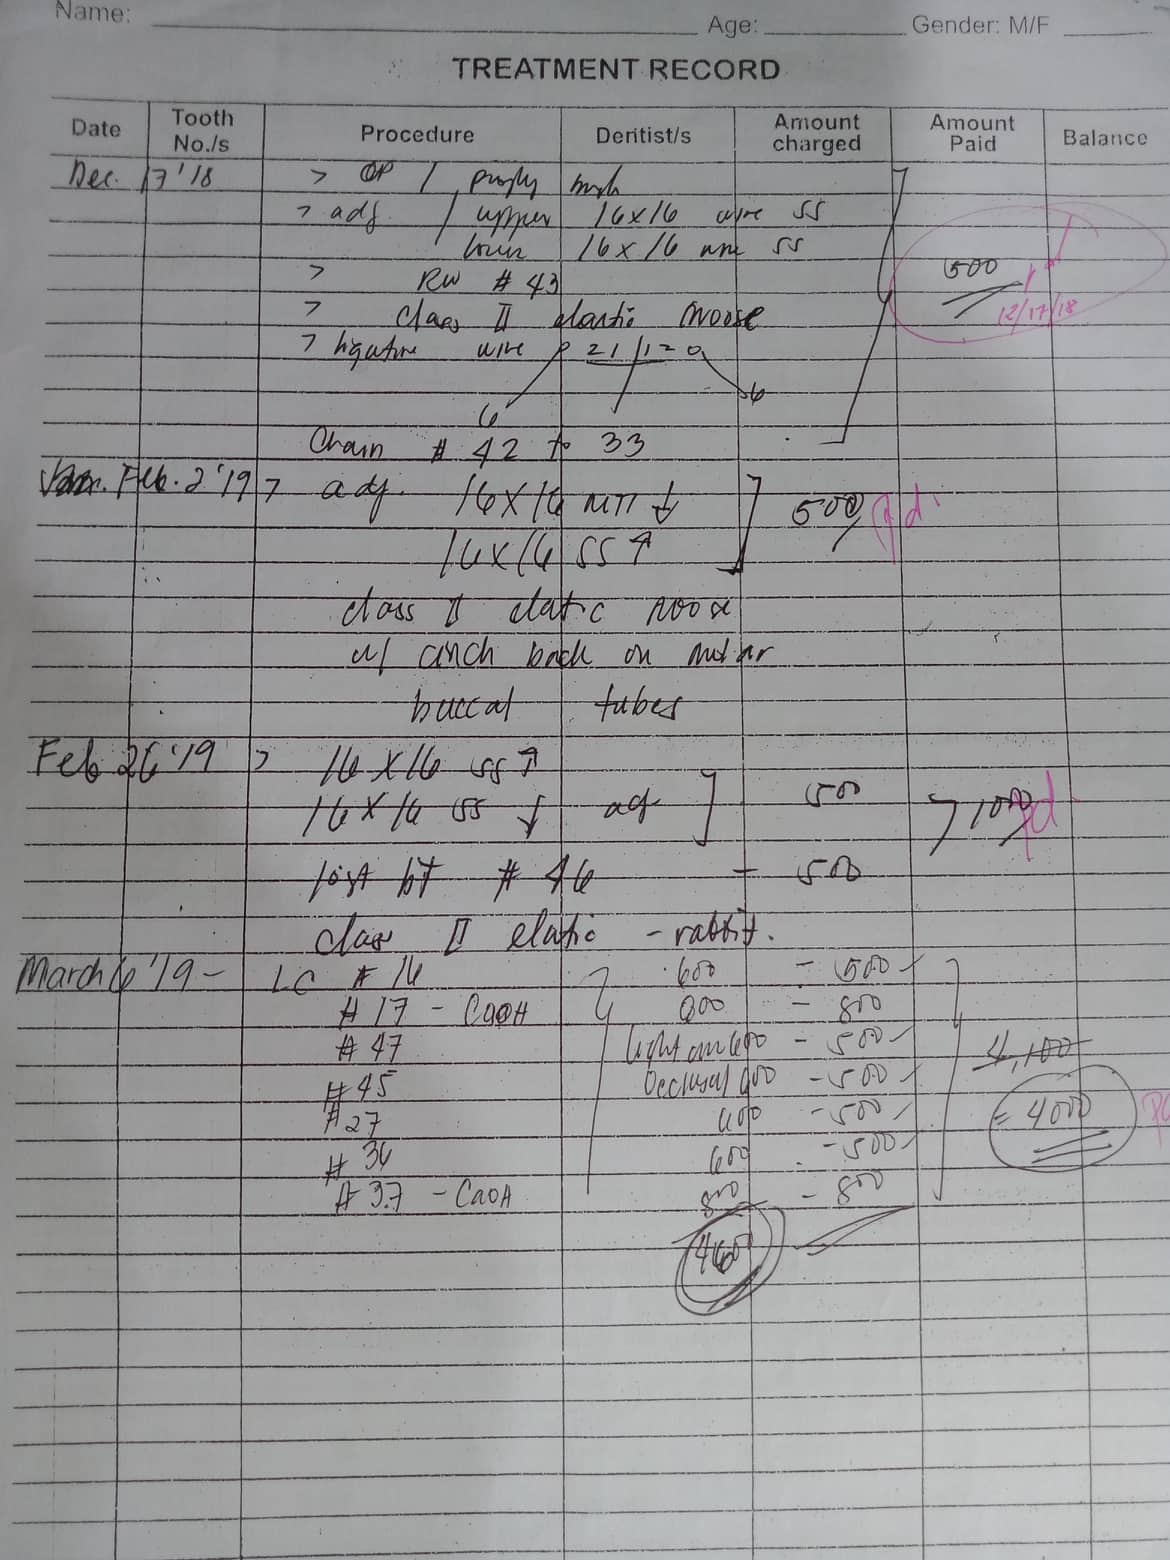 Name: Age: Gender: M/F
TREATMENT RECORD
Date Tooth No./s Procedure Dentist/s Amount charged Amount Paid Balance
Dec. 17'18 > OP / prophy brush
> adj. / upper 16x16 wire SS
lower 16x16 wire SS
> RW # 43 500
> Class II elastic moose 12/17/18
> ligature wire 21/12
6 6
Chain # 42 to 33
Feb. 2'19 > adj. 16x16 ↓ 500 pd.
16x16 SS ↑
class II elatic moose
w/ cinch back on molar
buccal tubes
Feb 26'19 > 16x16 SS ↑
16x16 SS ↓ adj 500 1000 pd.
lost bt # 46 - 500
class II elatic - rabbit.
March 6'19 - LC # 16 600 - 500
# 17 - CaOH 800 - 800
# 47 light cure 600 - 500 4,100
# 45 Occlusal - 500
# 27 600 - 500 = 4000
# 36 600 - 500
# 37 - CaOH 800 - 800
4600